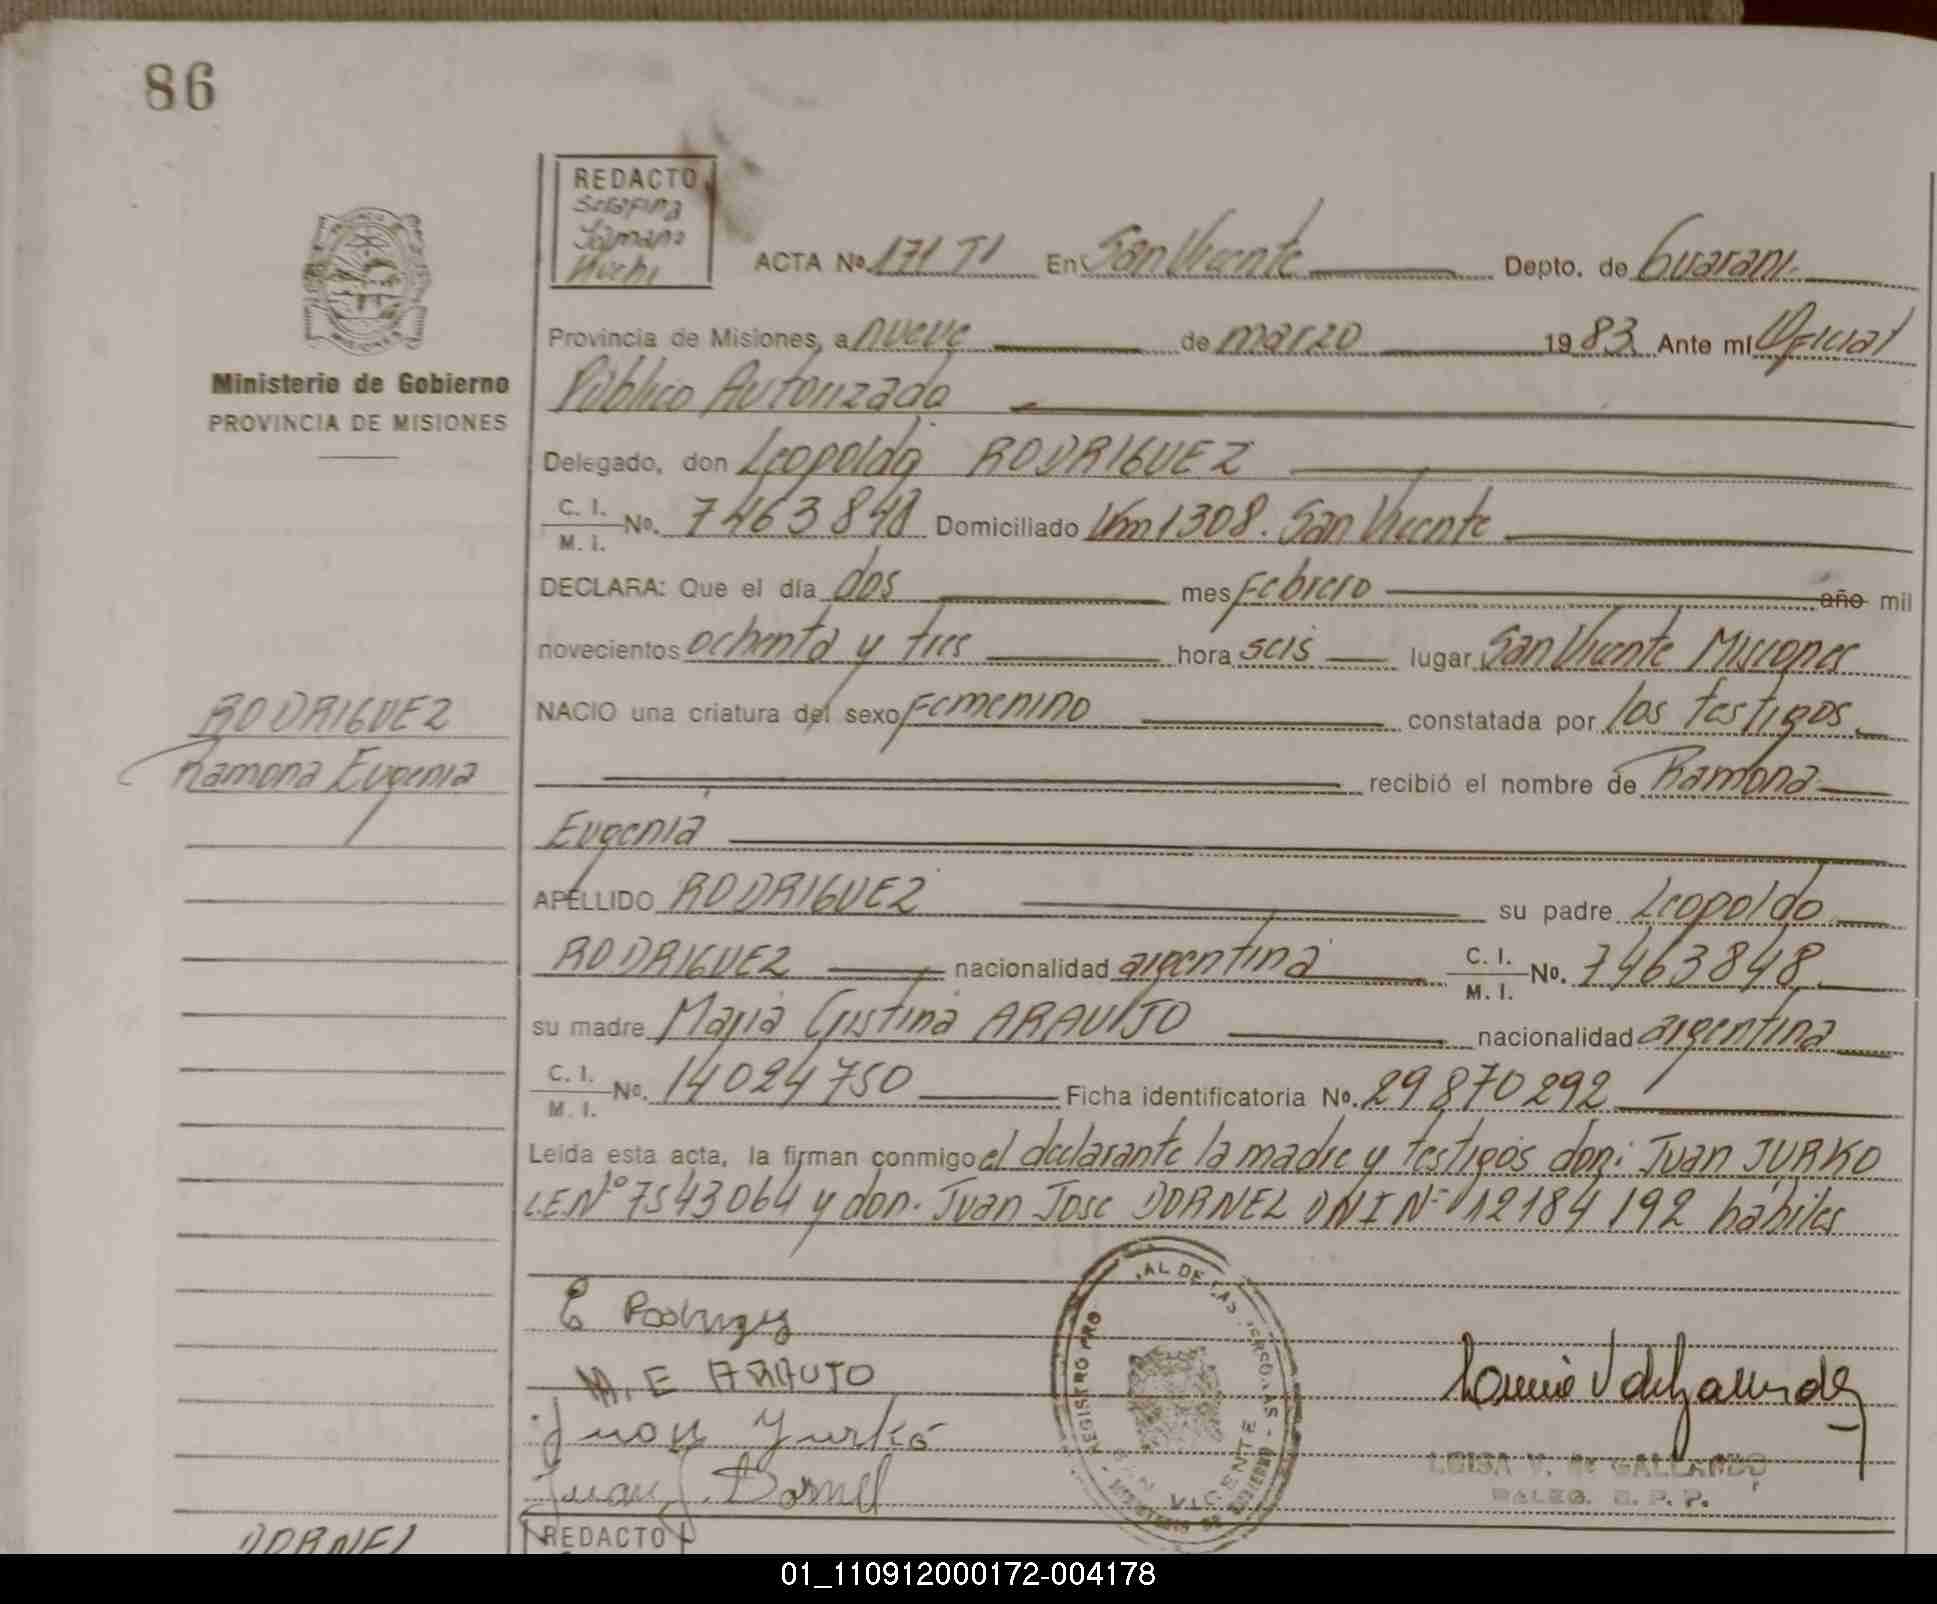 86
REDACTO
Serafina
ACTA Nº 171 TI En San Vicente Depto. de Guaraní
Provincia de Misiones, a nueve de marzo 1983. Ante mí Oficial
Público Autorizado
Ministerio de Gobierno
PROVINCIA DE MISIONES
Delegado, don Leopoldo RODRIGUEZ
C. I. / M. I. Nº. 7463848 Domiciliado Km 1308. San Vicente
DECLARA: Que el día dos mes Febrero año mil
novecientos ochenta y tres hora seis lugar San Vicente Misiones
NACIO una criatura del sexo Femenino constatada por los testigos
RODRIGUEZ
Ramona Eugenia
recibió el nombre de Ramona
Eugenia
APELLIDO RODRIGUEZ su padre Leopoldo
RODRIGUEZ nacionalidad argentina C. I. / M. I. Nº. 7463848
su madre Maria Cristina ARAUJO nacionalidad argentina
C. I. / M. I. Nº. 14024750 Ficha identificatoria Nº. 29870292
Leída esta acta, la firman conmigo el declarante la madre y testigos don: Juan JURKO
L.E.Nº 7543064 y don. Juan Jose DORNEL DNI Nº 12184192 hábiles
E Rodriguez
M. E ARAUJO
Juan Yurko
Juan J. Dornel
REGISTRO PRO
AL DE LAS PERSONAS
SAN VICENTE
LUISA V. de GALLARDO
DELEG. R. P. P.
DORNEL
REDACTO
01_110912000172-004178